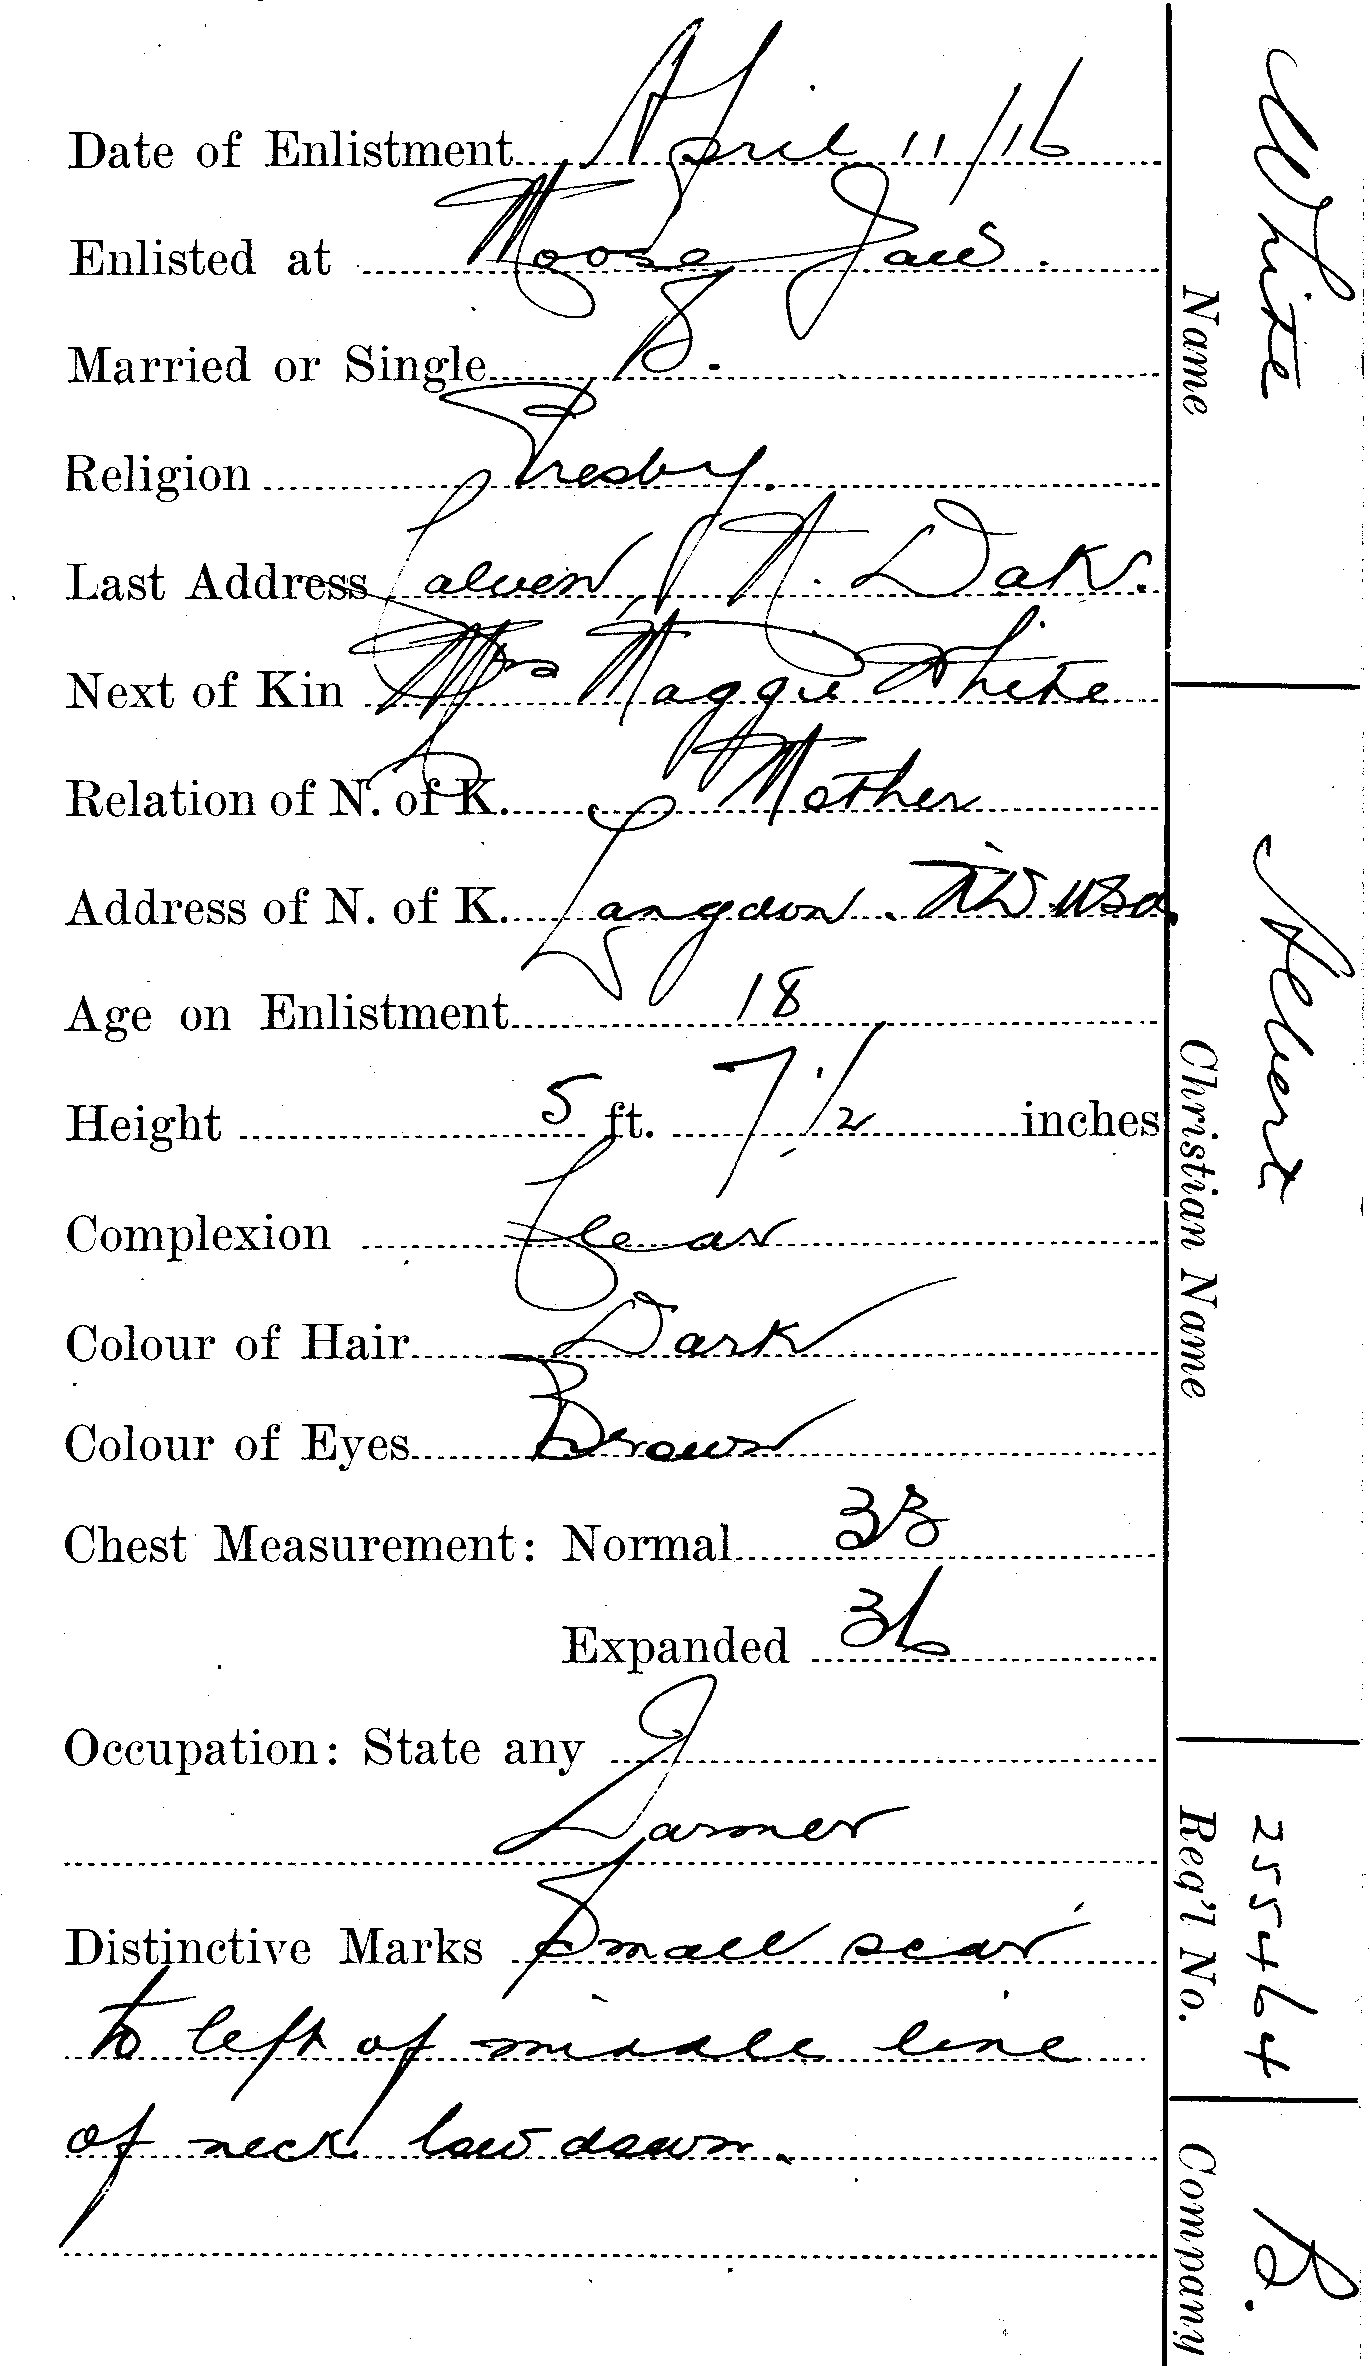 Date of Enlistment April 11/16
Enlisted at Moose Jaw.
Married or Single S.
Religion Presby.
Last Address Calvin, N. Dak.
Next of Kin Mrs Maggie White
Relation of N. of K. Mother
Address of N. of K. Langdon. ND USA.
Age on Enlistment 18
Height 5 ft. 7 1/2 inches
Complexion Clear
Colour of Hair Dark
Colour of Eyes Brown
Chest Measurement: Normal 33
Expanded 36
Occupation: State any
Farmer
Distinctive Marks Small scar
to left of middle line
of neck low down.
White
Name
Albert
Christian Name
255464
Req'l No.
B.
Company